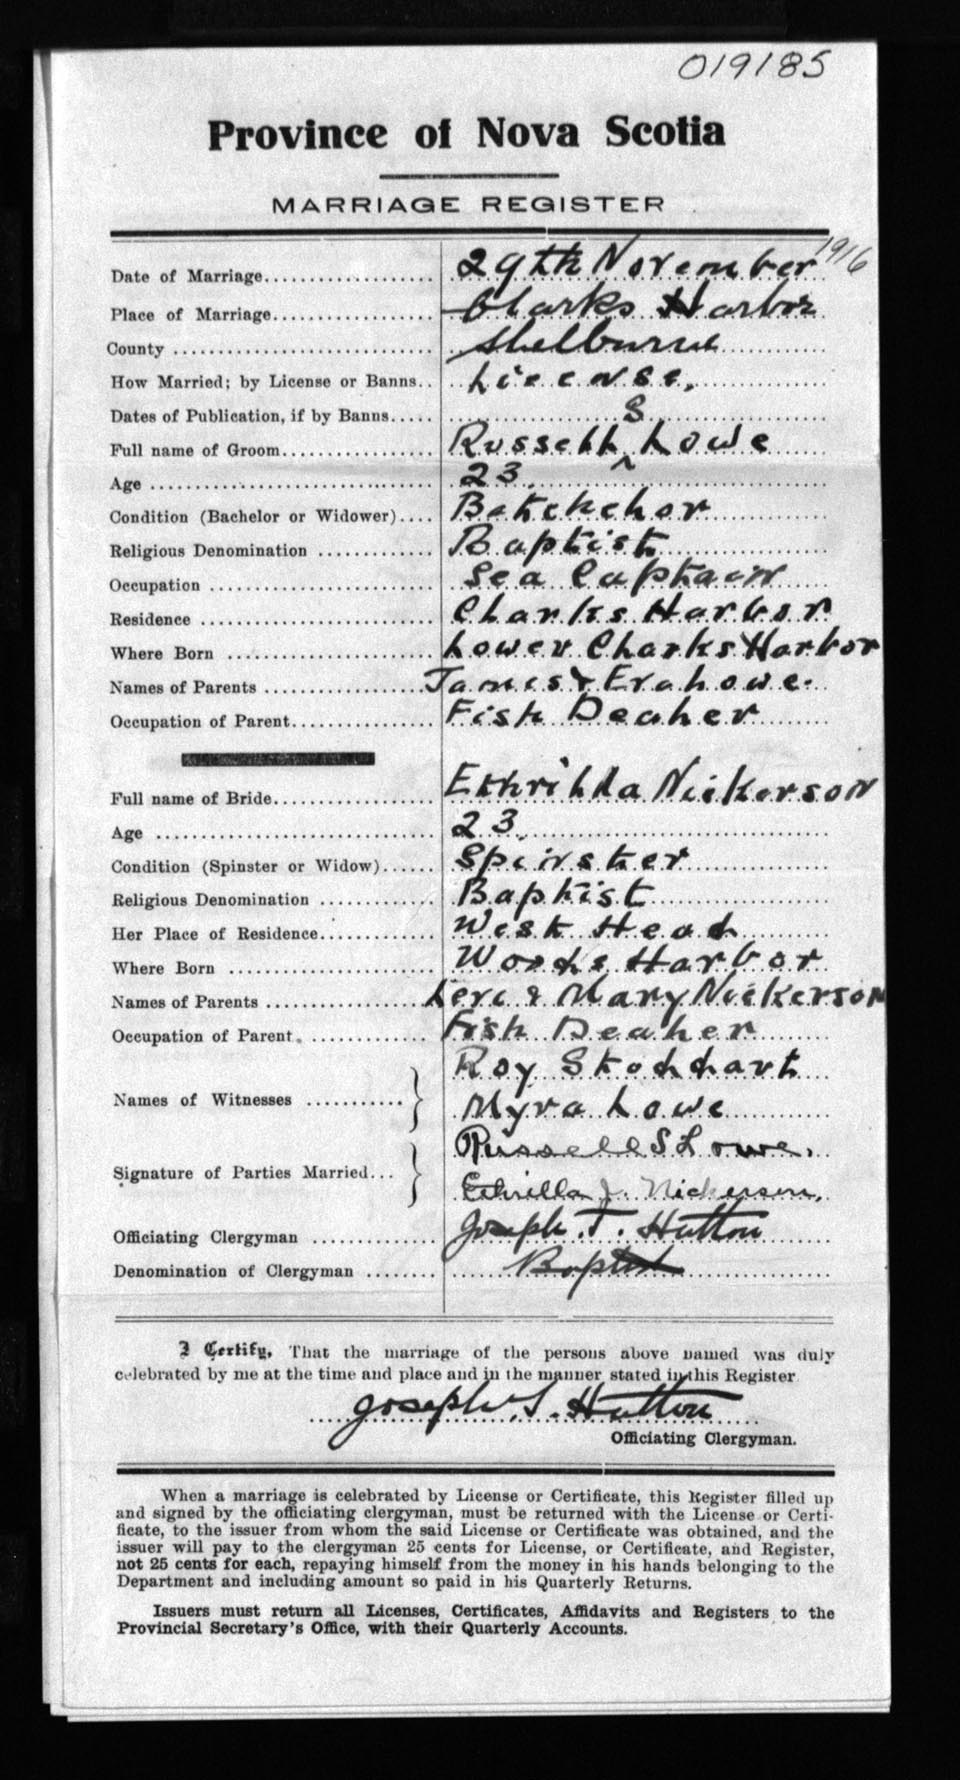 019185
Province of Nova Scotia
MARRIAGE REGISTER
Date of Marriage 29th November 1916
Place of Marriage Clarks Harbor
County Shelburne
How Married; by License or Banns License.
Dates of Publication, if by Banns
Full name of Groom Russell S Lowe
Age 23.
Condition (Bachelor or Widower) Batchelor
Religious Denomination Baptist
Occupation Sea Captain
Residence Clarks Harbor
Where Born Lower Clarks Harbor
Names of Parents James & Eva Lowe.
Occupation of Parent Fish Dealer
Full name of Bride Ethrilda Nickerson
Age 23
Condition (Spinster or Widow) Spinster
Religious Denomination Baptist
Her Place of Residence West Head
Where Born Woods Harbor
Names of Parents Levi & Mary Nickerson
Occupation of Parent Fish Dealer
Roy Stoddart
Names of Witnesses
Myra Lowe
Russell S Lowe.
Signature of Parties Married
Ethrilla J. Nickerson.
Officiating Clergyman Joseph T. Hutton
Denomination of Clergyman Baptist
I Certify, That the marriage of the persons above named was duly
celebrated by me at the time and place and in the manner stated in this Register
Joseph T. Hutton
Officiating Clergyman.
When a marriage is celebrated by License or Certificate, this Register filled up
and signed by the officiating clergyman, must be returned with the License or Certi-
ficate, to the issuer from whom the said License or Certificate was obtained, and the
issuer will pay to the clergyman 25 cents for License, or Certificate, and Register,
not 25 cents for each, repaying himself from the money in his hands belonging to the
Department and including amount so paid in his Quarterly Returns.
Issuers must return all Licenses, Certificates, Affidavits and Registers to the
Provincial Secretary's Office, with their Quarterly Accounts.